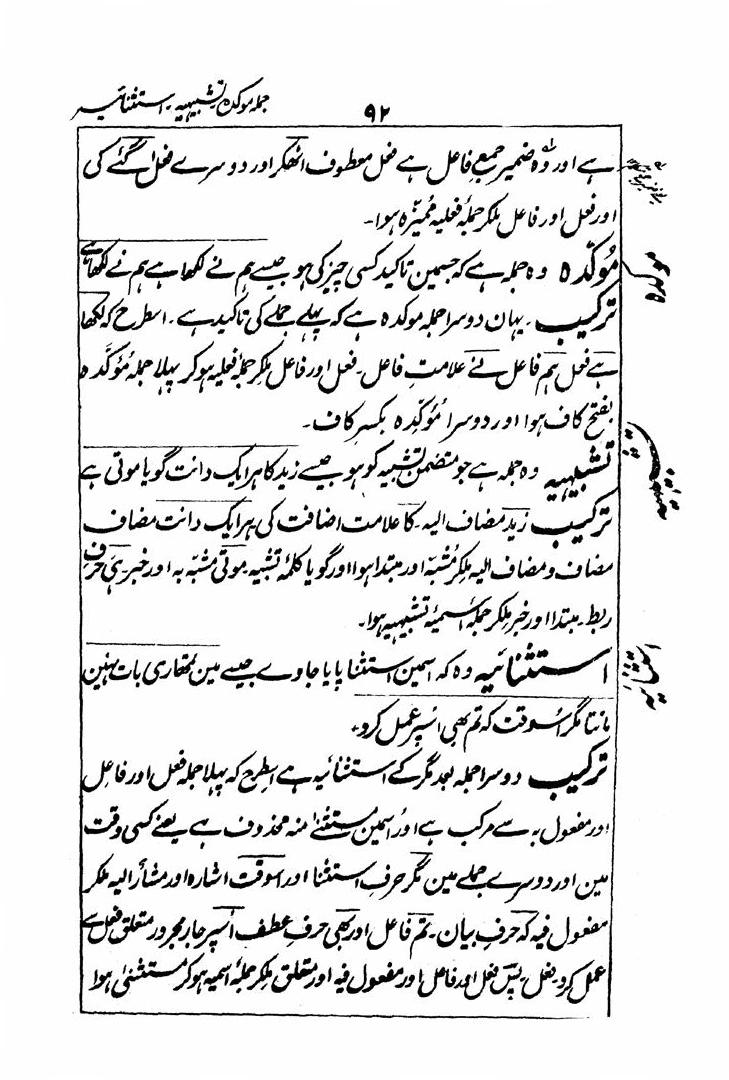 جملہ موکدہ تشبیہیہ۔ استثنائیہ
۹۲
ہے اور وہ ضمیر جمع فاعل ہے فعل معطوف اٹھکر اور دوسرے فعل گئے کی
اور فعل اور فاعل ملکر جملۂ فعلیہ ممیزہ ہوا۔
مؤکدہ
مُوکّدہ وہ جملہ ہے کہ جسمین تاکید کسی چیز کی ہو جیسے ہم نے لکھا ہے ہم نے لکھا ہے
ترکیب۔ یہان دوسرا جملہ موکدہ ہے کہ پہلے جملے کی تاکید ہے۔ اسطرح کہ لکھا
ہے فعل ہم فاعل نے علامتِ فاعل۔ فعل اور فاعل ملکر جملۂ فعلیہ ہوکر پہلا جملہ مُؤکَّدہ
بفتح کاف ہوا اور دوسرا مُوکِّدہ بکسر کاف۔
تشبیہیہ
تشبیہیہ وہ جملہ ہے جو متضمن تشبیہ کو ہو جیسے زید کا ہر ایک دانت گویا موتی ہے
ترکیب زید مضاف الیہ۔ کا علامت اضافت کی ہر ایک دانت مضاف
مضاف و مضاف الیہ ملکر مُشبّہ اور مبتدا ہوا اور گویا کلمۂ تشبیہ۔ موتی مشبّہ بہ اور خبر ہے حرف
ربط۔ مبتدا اور خبر ملکر جملہ اسمیۂ تشبیہیہ ہوا۔
استثنائیہ
استثنائیہ وہ کہ اسمین استثنا پایا جاوے جیسے مین تمھاری بات نہین
مانتا مگر اُسوقت کہ تم بھی اُسپر عمل کرو۔
ترکیب دوسرا جملہ بعد مگر کے استثنائیہ ہے اسطرح کہ پہلا جملہ فعل اور فاعل
اور مفعول بہ سے مرکب ہے اور اُسمین مستثنیٰ منہ محذوف ہے یعنے کسی وقت
مین اور دوسرے جملے مین مگر حرفِ استثنا اور اسوقت اشارہ اور مشارٌ الیہ ملکر
مفعول فیہ کہ حرفِ بیان۔ تم فاعل اور بھی حرفِ عطف اُسپر جار مجرور متعلق فعل سے
عمل کرو فعل۔ پس فعل اور فاعل اور مفعول فیہ اور متعلق ملکر جملۂ اسمیہ ہوکر مستثنیٰ ہوا